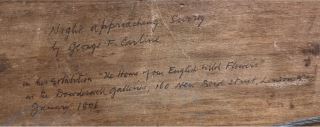 Night approaching Surrey
by George F. Carline
in his exhibition "The Home of our English Wild Flowers"
at the Dowdeswell Galleries, 160 New Bond Street, London
January 1896